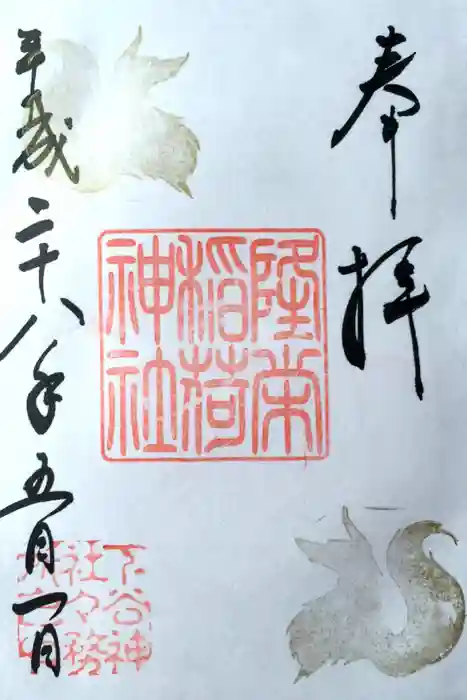 奉拝
隆栄
稲荷
神社
平成二十八年五月一日
下谷神
社々務